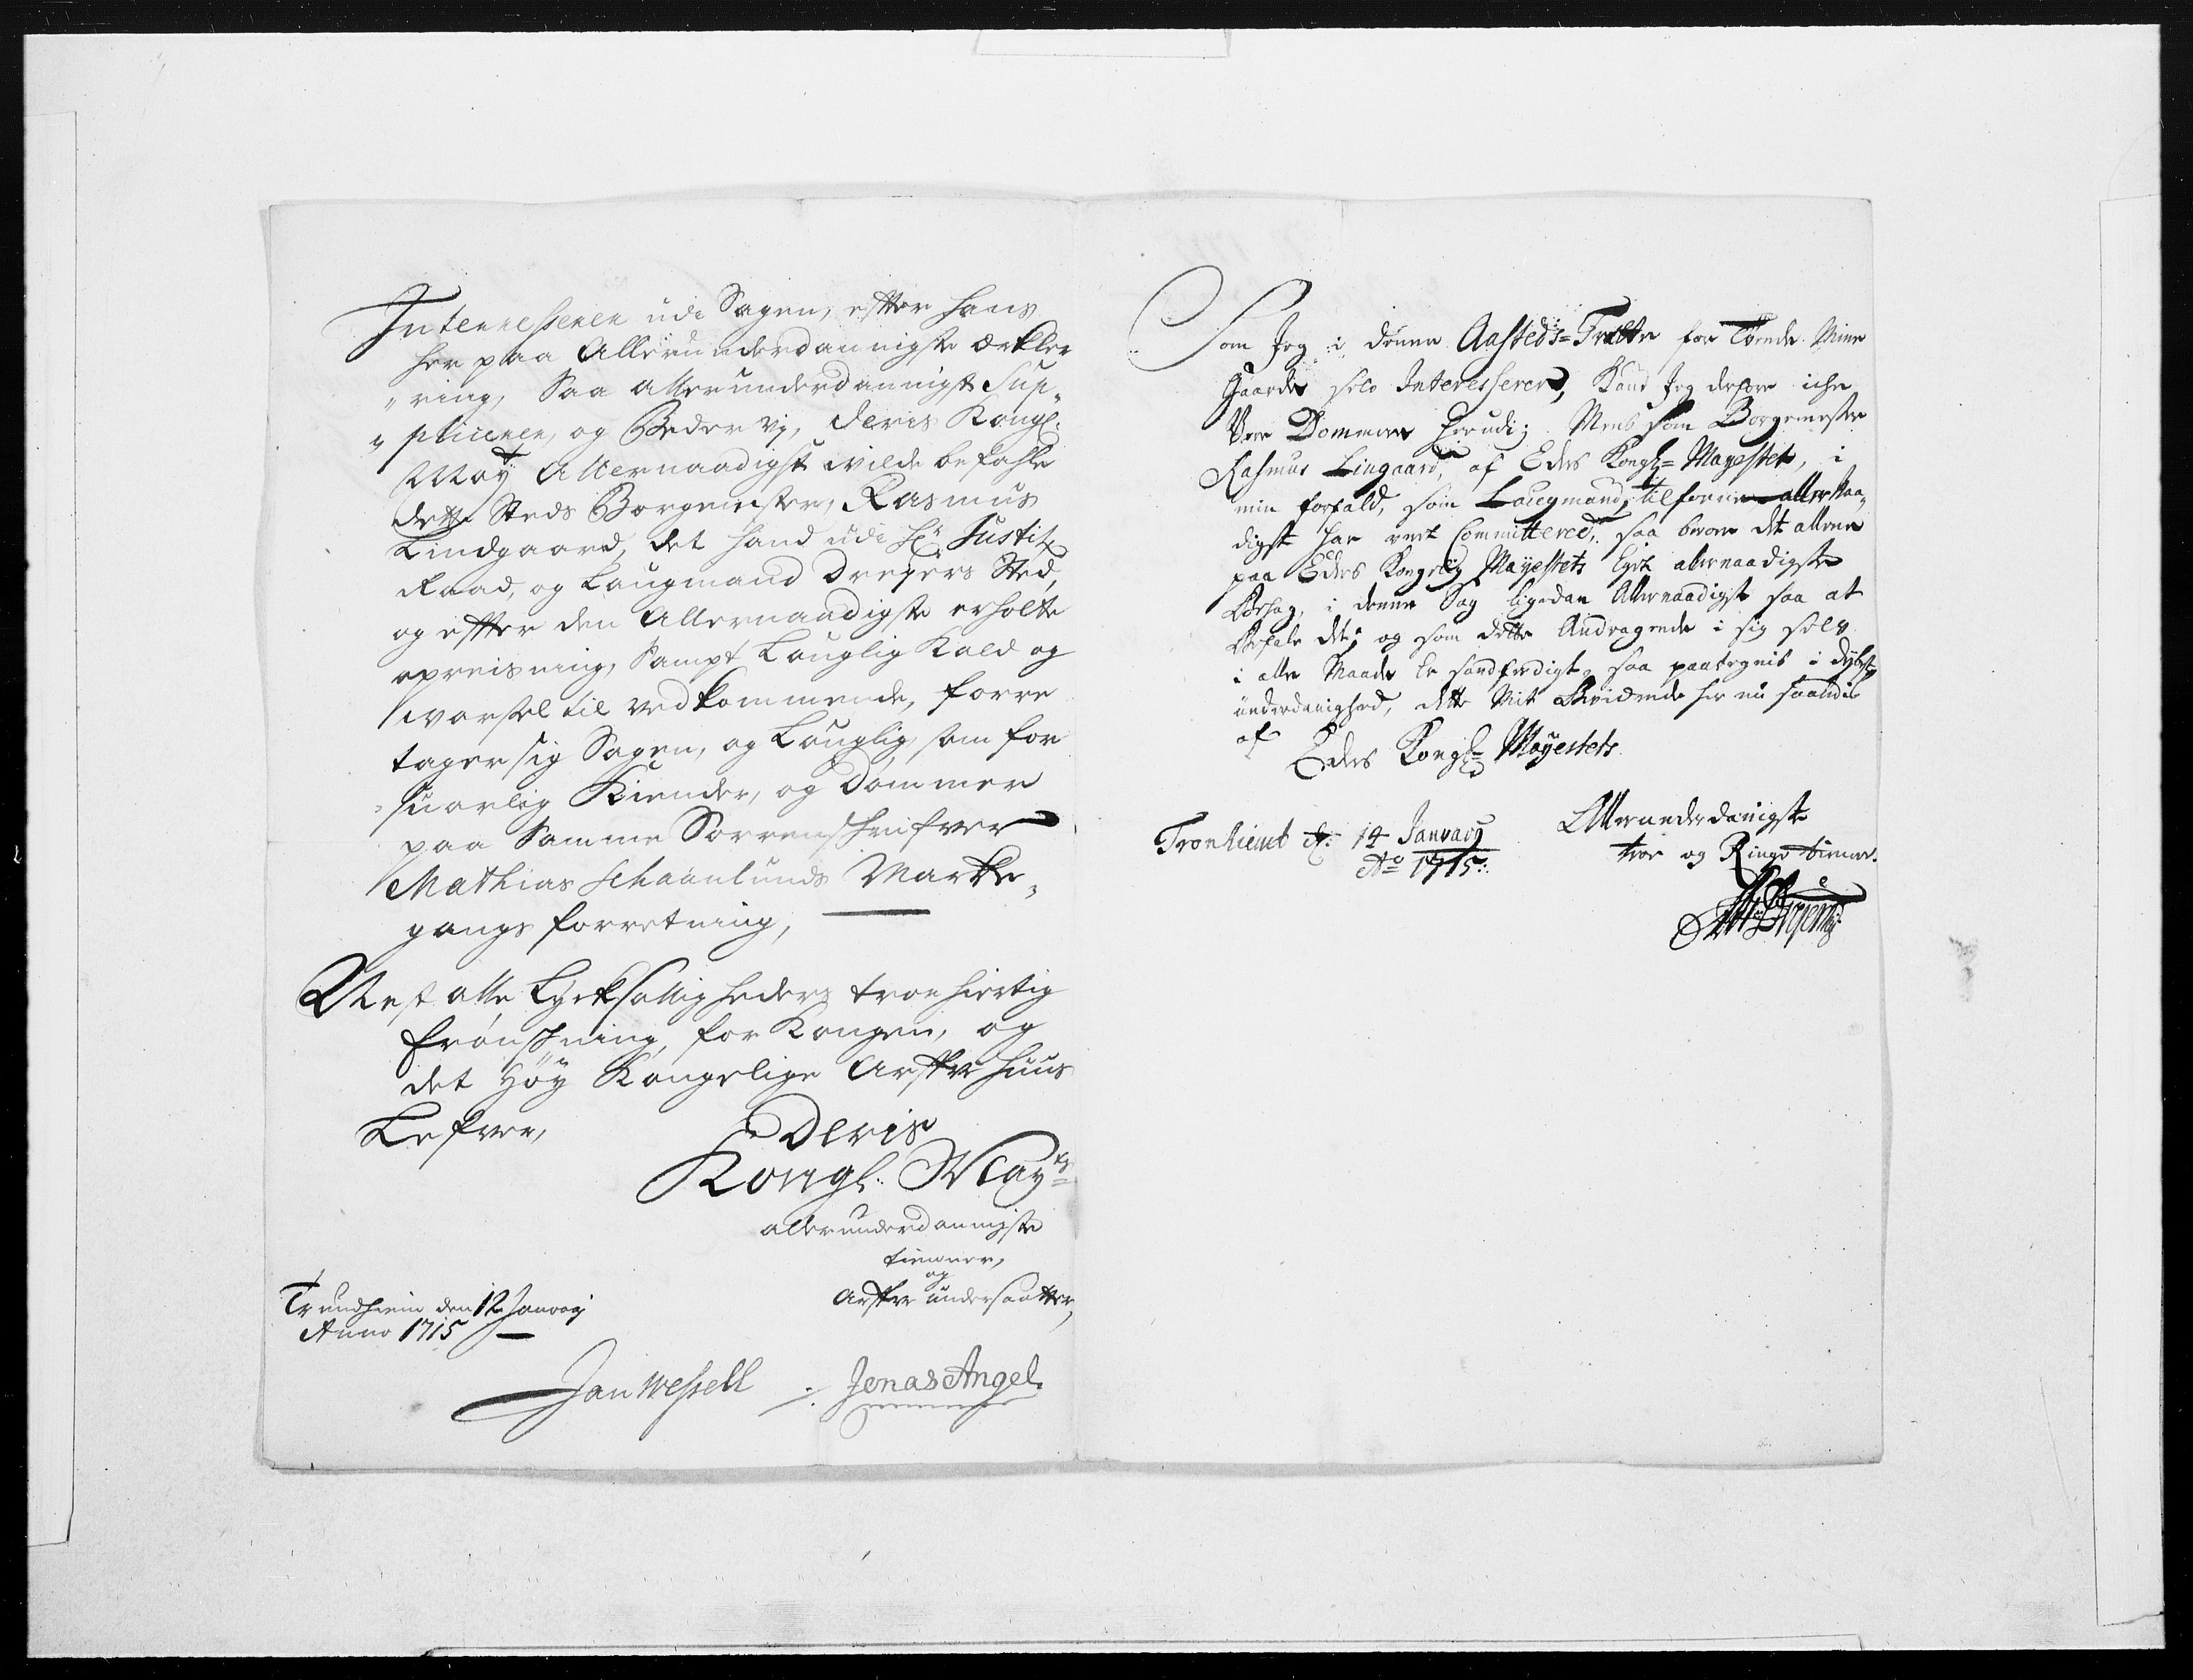 Interressener udi Sagen, effter hans
her paa Allerunderdannigste ærkler
"ring, Saa allerunderdannigst Sup"
"plicerer, og Beder vj, Deris Kongl:
Mayt Allernaadigst wilde befahle
dette Steds Borgemester, Rasmus
Lindgaard, det hand udi Hr Justitz
Raad, og Laugmand Dreyers Sted,
og effter den Allernaadigste erholte
opreisning, Sampt Lauglig Kald og
warsel til vedkommende, forre
tager sig Sagen, og Lauglig, som for
suarlig Kiender, og Dømmer
paa Samme Sorrenschrifver
Mathias Schaanlunds Marke
gangs forretning,
Nest alle Lycksalligheders troe hiertig
Erønschning, for Kongen, og
det Høy Kongelige Arffve Huus
Lefver,
Deris
Kongl: Mayts
allerunderdannigste
tienner,
og
Arffve undersaatter,
Trundhiem den 12 Janvarij
Anno 1715
Jan Wessell Jonas Angel
Som Jeg i denne Aasteds-Trætte for Tvende Mine
Gaarde selv Interesserer, Kand Jeg derfore iche
Vere Dommer herudi; Mens som Borgemester
Rasmus Lingaard, af Eders Kongl: Mayestet, i
min forfald, som Laugmand, tilforne allernaa
digst har vert Committered, saa beroer det allene
paa Eders Kongelig Mayestets Eget allernaadigste
Behag, i denne Sag ligedan Allernaadigst saa at
Befale det; og som dette Andragende i sig selv
i alle Maade er sandferdigt, saa paategnis i dybeste
underdanighed, dette Mit her nu saaledis
af
Eders Kongl: Mayestets
Allerunderdanigste
troe og Ringe tienner.
Tronhiemb d: 14 Janvarij
Ao 1715: